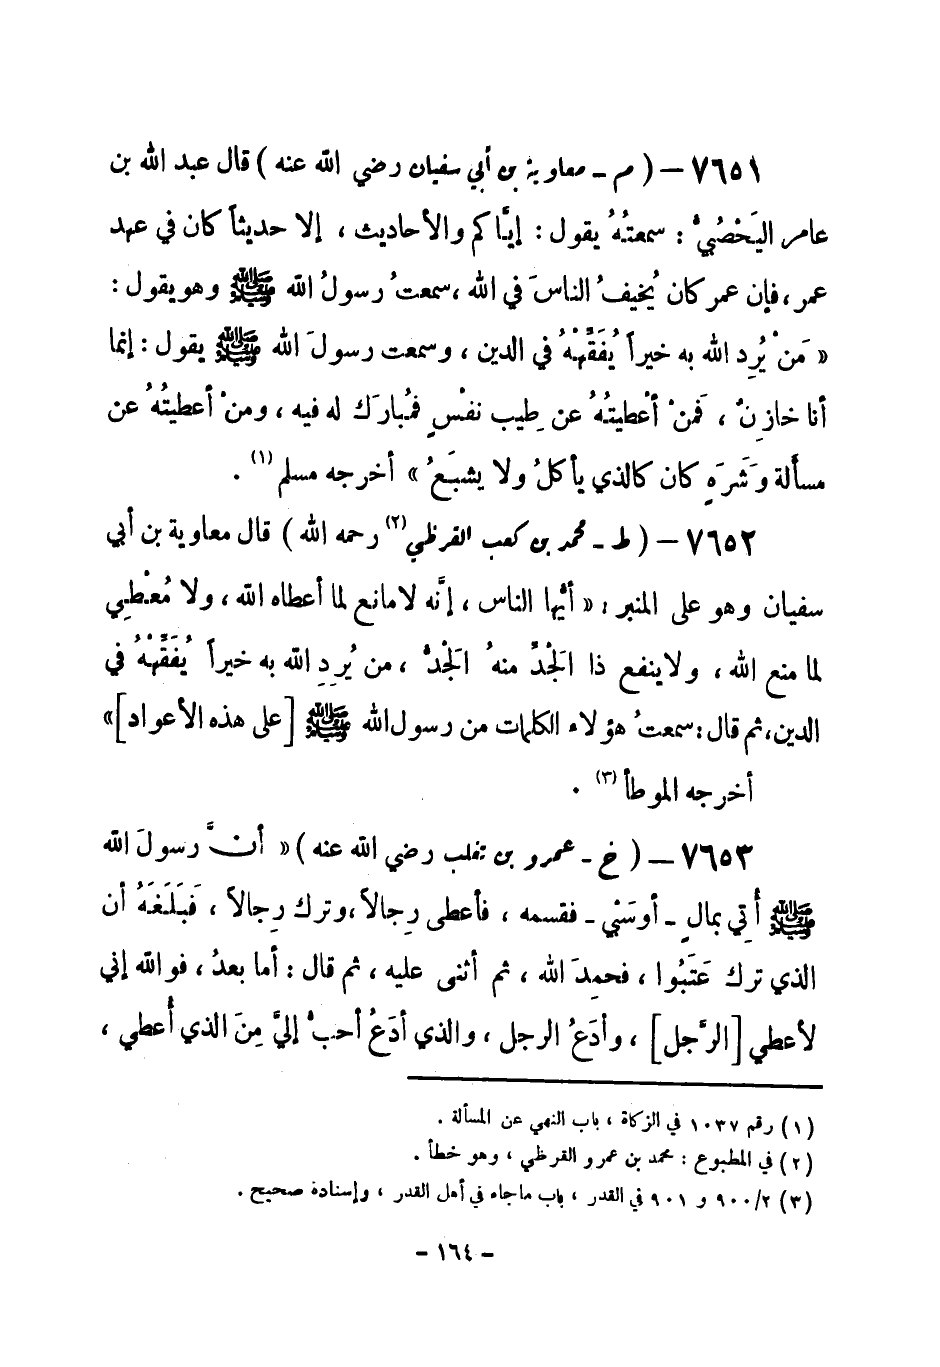 ٧٦٥١ – ( م – معاوية بن أبي سفيان رضي الله عنه ) قال عبد الله بن
عامر اليَحْصُبيُّ : سمعتُهُ يقول : إيَّاكم والأحاديث ، إلا حديثاً كان في عهد
عمر ، فإن عمر كان يُخيفُ الناسَ في الله ، سمعتُ رسولُ الله ﷺ وهو يقول :
« مَنْ يُرِدِ الله به خيراً يُفَقِّهْهُ في الدين ، وسمعت رسولَ الله ﷺ يقول : إنما
أنا خازِنٌ ، فَمنْ أعْطيتُهُ عن طِيب نفْسٍ فمُبارَك له فيه ، ومنْ أعطيتُهُ عن
مسألة وَشَرَهٍ كان كالذي يأكلُ ولا يشبَعُ » أخرجه مسلم (١) .
٧٦٥٢ – ( ط – محمد بن كعب القرظي (٢) رحمه الله ) قال معاوية بن أبي
سفيان وهو على المنبر : « أيُّها الناس ، إنَّه لامانع لما أعطاه الله ، ولا مُعْطِي
لما منع الله ، ولاينفع ذا الجَدِّ منهُ الجَدُّ ، من يُرِدِ الله به خيراً يُفَقِّهْهُ في
الدين، ثم قال : سمعتُ هؤلاء الكلمات من رسول الله ﷺ [على هذه الأعواد] »
أخرجه الموطأ (٣) .
٧٦٥٣ – ( خ – عمرو بن تغلب رضي الله عنه ) « أنَّ رسولَ الله
ﷺ أُتِي بمالٍ – أوسَبْيٍ – فقسمه ، فأعطى رِجالاً ، وترك رِجالاً ، فَبَلَغَهُ أن
الذي ترك عَتَبُوا ، فحمِدَ الله ، ثم أثنى عليه ، ثم قال : أما بعدُ ، فوالله إني
لأعطي [الرَّجل] ، وأدَعُ الرجل ، والذي أدَعُ أحبُّ إليَّ مِنَ الذي أُعطي ،
(١) رقم ١٠٣٧ في الزكاة ، باب النهي عن المسألة .
(٢) في المطبوع : محمد بن عمرو القرظي ، وهو خطأ .
(٣) ٩٠٠/٢ و ٩٠١ في القدر ، باب ماجاء في أهل القدر ، وإسناده صحيح .
– ١٦٤ –